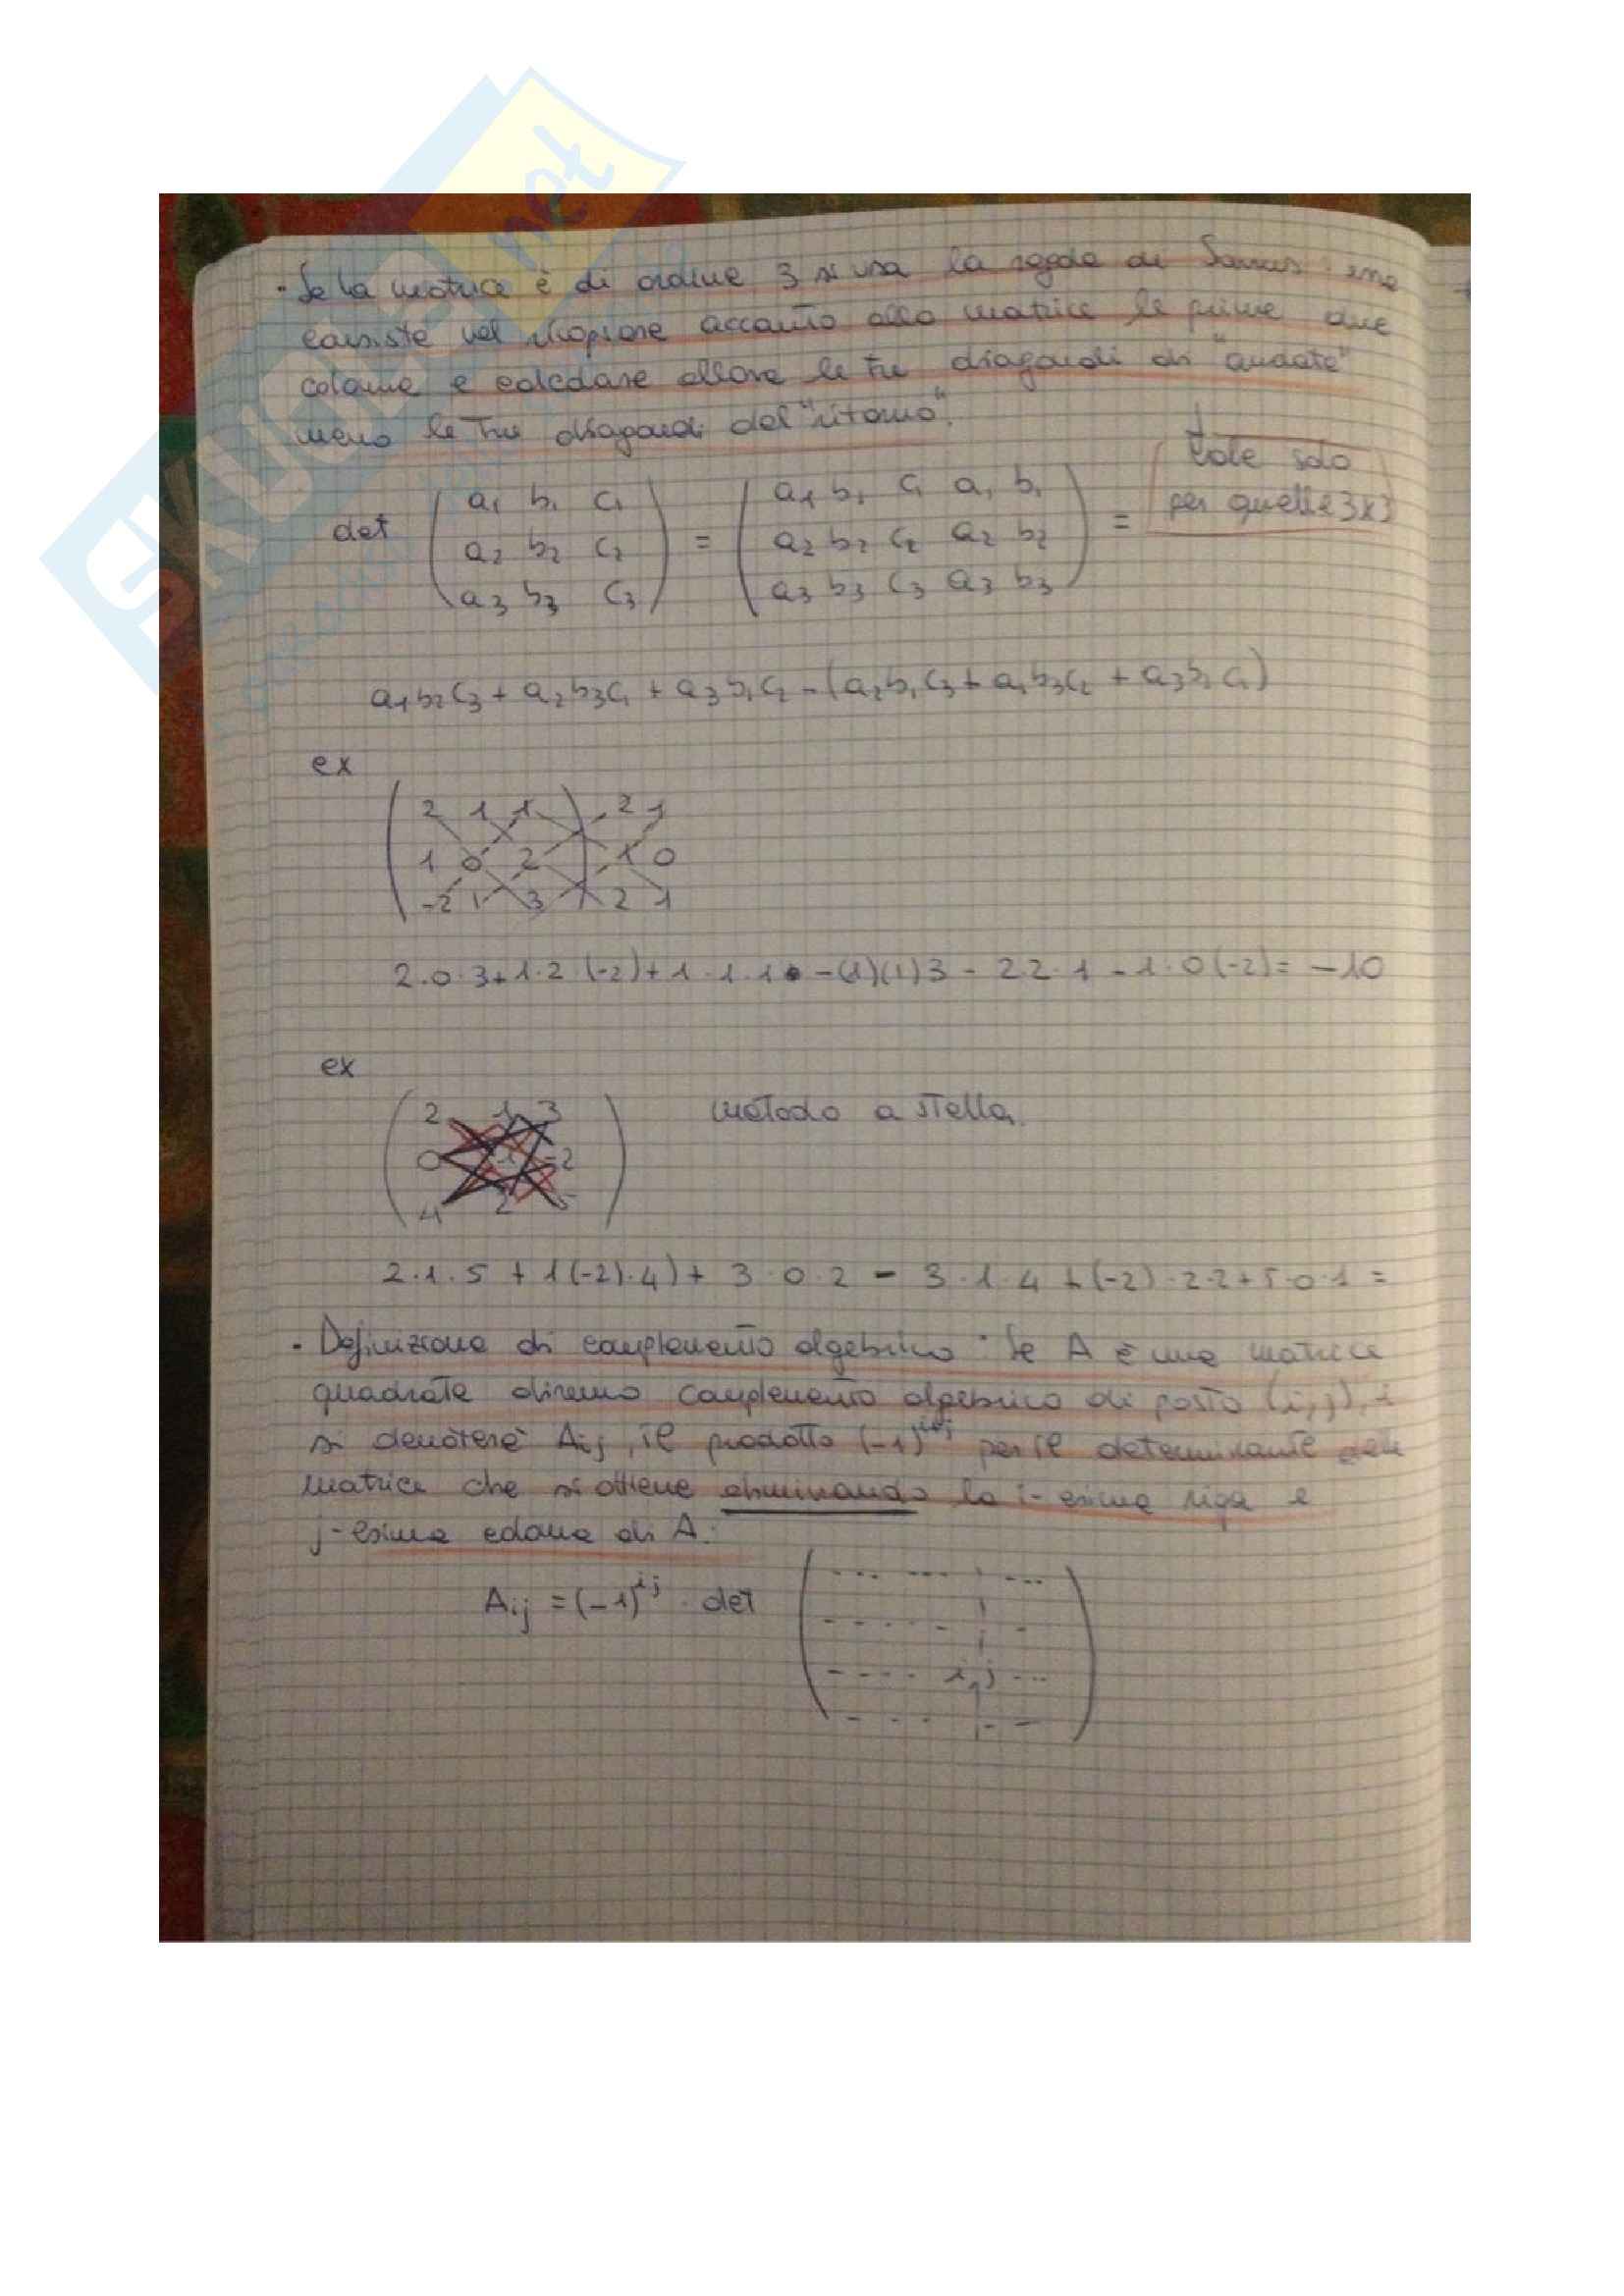 SKUOLA.net
• Se la matrice è di ordine 3 si usa la regola di Sarrus che
consiste nel ricopiare accanto alla matrice le prime due
colonne e calcolare allora le tre diagonali di "andata"
meno le tre diagonali del "ritorno".
vale solo
per quelle 3x3
det ( a₁ b₁ c₁ ) = ( a₁ b₁ c₁ a₁ b₁ ) =
a₂ b₂ c₂ a₂ b₂ c₂ a₂ b₂
a₃ b₃ c₃ a₃ b₃ c₃ a₃ b₃
a₁b₂c₃ + a₂b₃c₁ + a₃b₁c₂ - (a₂b₁c₃ + a₁b₃c₂ + a₃b₂c₁)
ex
2 1 1 2 1
1 0 2 1 0
-2 1 3 2 1
2·0·3+1·2(-2)+1·1·1 -(1)(1)3 - 2·2·1 - 1·0(-2)= -10
ex
2 1 3 metodo a stella
0 1 -2
4 2 5
2·1·5 + 1(-2)·4)+ 3·0·2 - 3·1·4 + (-2)·2·2+5·0·1 =
• Definizione di complemento algebrico: Se A è una matrice
quadrata diremo complemento algebrico di posto (i,j),
si denoterà Aij, il prodotto (-1)^ij per il determinante della
matrice che si ottiene eliminando la i-esima riga e
j-esima colonna di A.
Aij = (-1)^ij · det
i,j